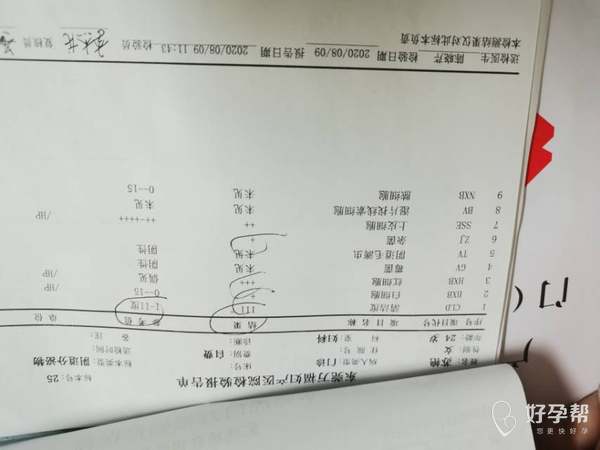 东莞万福妇产医院检验报告单
标本号：25
病人类型：门诊
床号：
标本类型：阴道分泌物
性别：女
费别：自费
送检时间：
年龄：24 岁
科 室：妇科
诊断：
备 注：
序号 项目代号 项 目 名 称 结 果 参 考 值 单 位
1 CLD 清洁度 III I-II度
2 BXB 白细胞 + 0--15 /HP
3 HXB 红细胞 +++ 偶见 /HP
4 GV 霉菌 未见 阴性
5 TV 阴道毛滴虫 未见 阴性
6 ZJ 杂菌 +
7 SSE 上皮细胞 ++ ++-++++ /HP
8 BV 涂片找线索细胞 未见 未见
9 NXB 脓细胞 未见 0--15
送检医生 陈晓芹 检验日期 2020/08/09 报告日期 2020/08/09 11:13 检验员 复核员
本检测结果仅对此标本负责
门（
好孕帮
您更快好孕